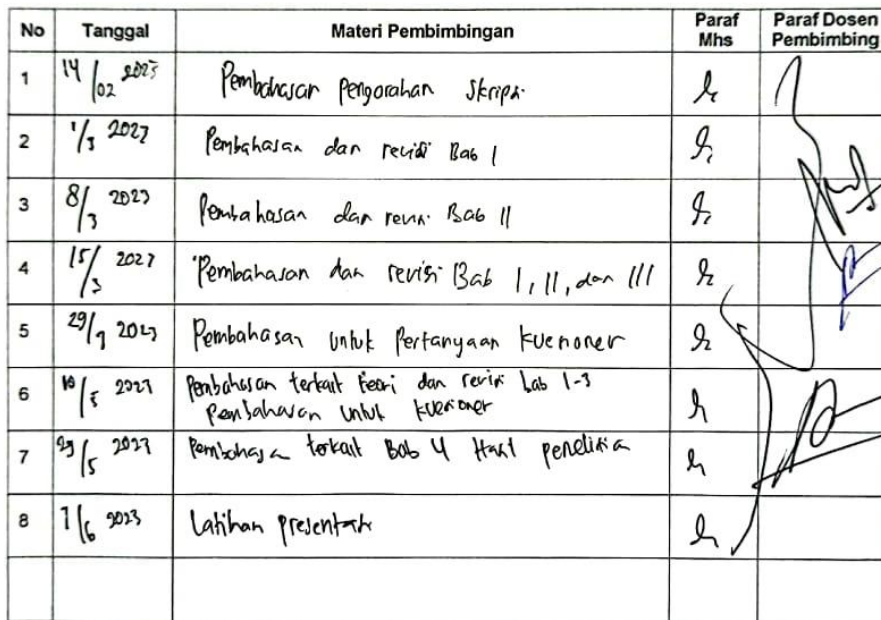 No Tanggal Materi Pembimbingan Paraf Mhs Paraf Dosen Pembimbing
1 14/02 2023 Pembahasan pengarahan skripsi
2 1/3 2023 Pembahasan dan revisi Bab I
3 8/3 2023 Pembahasan dan revisi Bab II
4 15/3 2023 Pembahasan dan revisi Bab I, II, dan III
5 2023 Pembahasan untuk Pertanyaan kuesioner
6 2023 Pembahasan terkait teori dan revisi bab 1-3
Pembahasan untuk kuesioner
7 29/5 2023 Pembahasan terkait Bab 4 Hasil penelitian
8 2023 Latihan presentasi